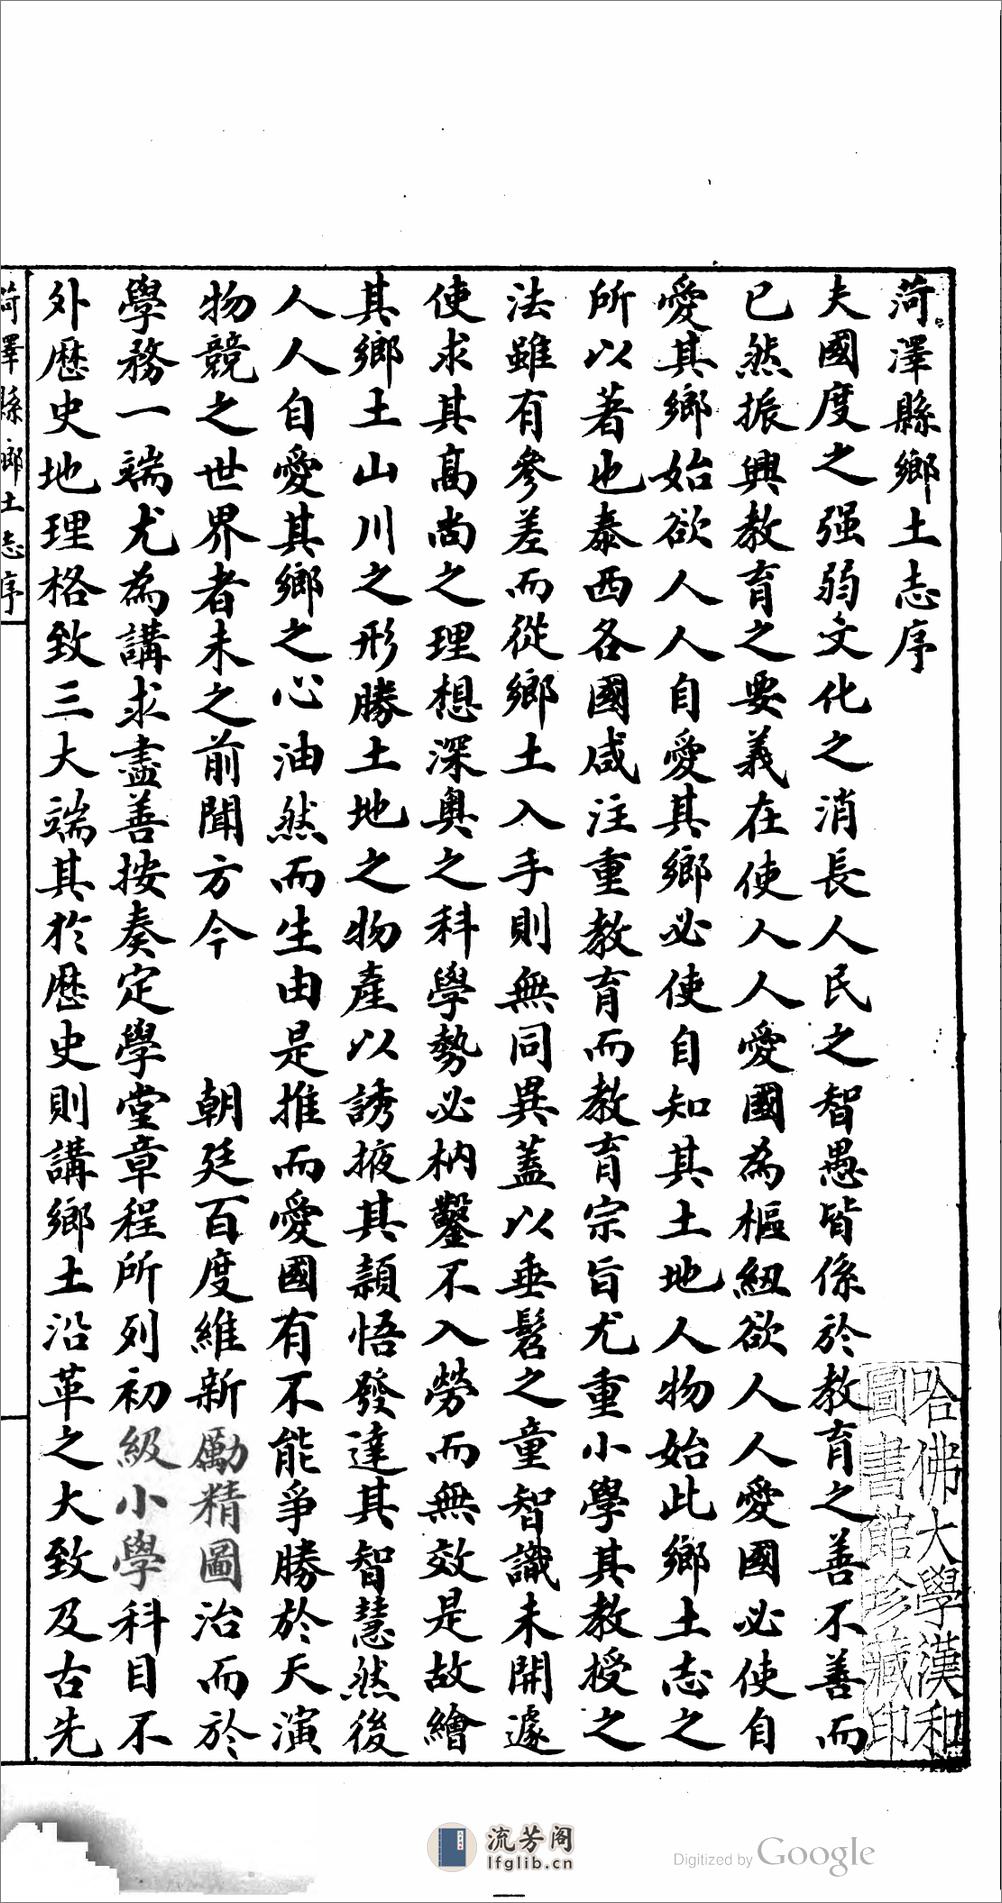 菏澤縣鄉土志序
夫國度之强弱文化之消長人民之智愚皆係於教育之善不善而
已然振興教育之要義在使人人愛國為樞紐欲人人愛國必使自
愛其鄉始欲人人自愛其鄉必使自知其土地人物始此鄉土志之
所以著也泰西各國咸注重教育而教育宗旨尤重小學其教授之
法雖有參差而從鄉土入手則無同異蓋以垂髫之童智識未開遽
使求其高尚之理想深奧之科學勢必枘鑿不入勞而無效是故繪
其鄉土山川之形勝土地之物產以誘掖其頴悟發達其智慧然後
人人自愛其鄉之心油然而生由是推而愛國有不能爭勝於天演
物競之世界者未之前聞方今　　朝廷百度維新勵精圖治而於
學務一端尤為講求盡善按奏定學堂章程所列初級小學科目不
外歷史地理格致三大端其於歷史則講鄉土沿革之大致及古先
菏澤縣鄉土志序
哈佛大學漢和
圖書館珍藏印
流芳阁
lfglib.cn
Digitized by Google